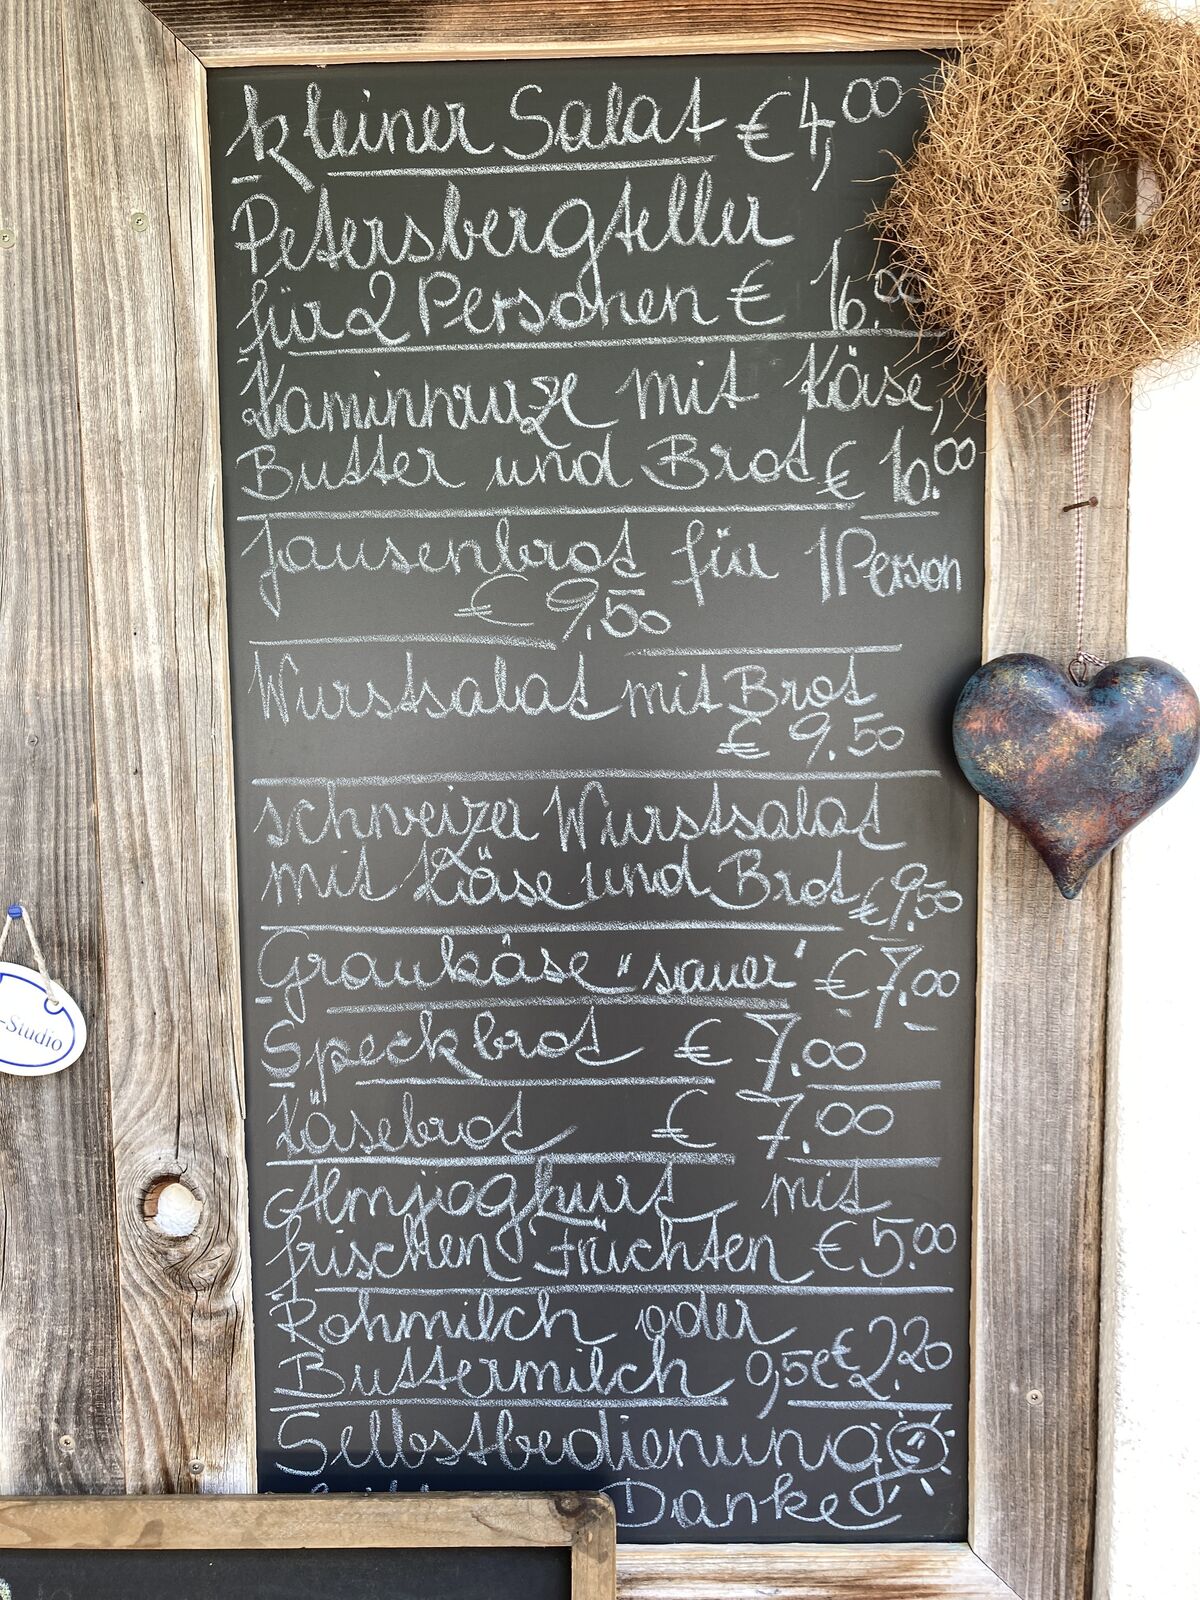 kleiner Salat € 4,00
Petersbergteller
für 2 Personen € 16.00
Kaminwurze mit Käse,
Butter und Brot € 10.00
Jausenbrot für 1 Person
€ 9,50
Wurstsalat mit Brot
€ 9.50
schweizer Wurstsalat
mit Käse und Brot € 9.50
Graukäse "sauer" € 7.00
Speckbrot € 7.00
Käsebrot € 7.00
Almjoghurt mit
frischen Früchten € 5.00
Rohmilch oder
Buttermilch 0,5l € 2.20
Selbstbedienung
Danke
-Studio